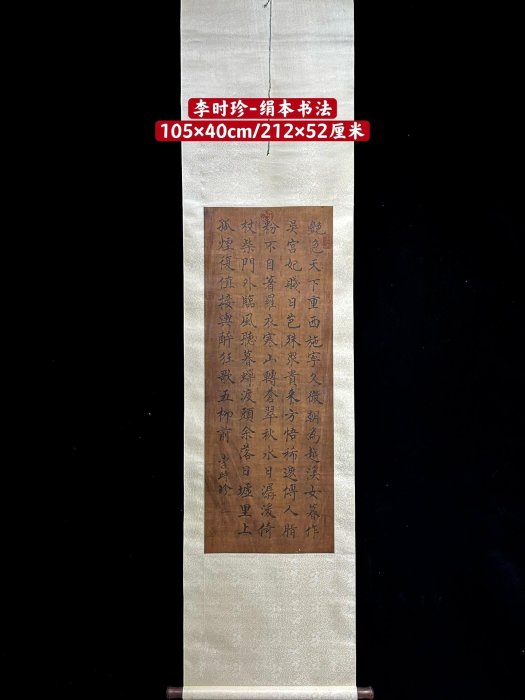 李时珍-绢本书法
105×40cm/212×52厘米
艷色天下重西施寧久微朝為越溪女暮作
吳宮妃賤日豈殊衆貴来方悟稀邀傅人脂
粉不自著羅衣寒山轉蒼翠秋水日潺湲倚
杖柴門外臨風聴暮蟬渡頭余落日墟里上
孤煙復值接輿醉狂歌五柳前
李時珍